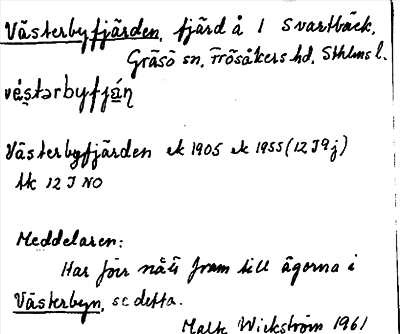 Västerbyfjärden, fjärd å 1 Svartbäck,
Gräsö sn, Frösåkers hd, Sthlms l.
vẹ́stərbyfjáṇ
Västerbyfjärden ek 1905 ek 1955 (12 J 9j)
tk 12 J NO
Meddelaren:
Har förr nått fram till ägorna i
Västerbyn, se detta.
Malte Wickström 1961